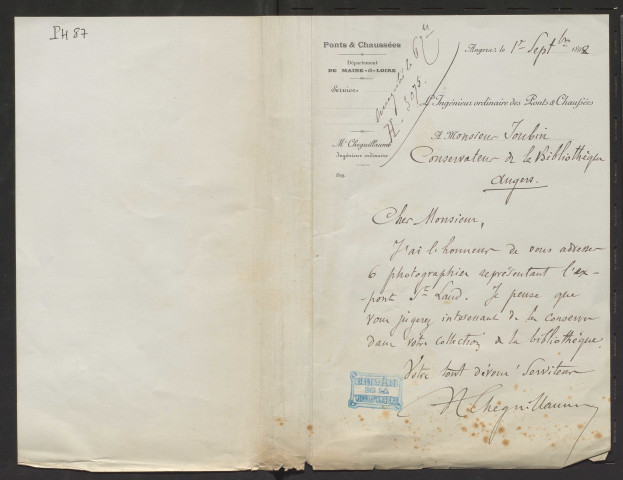 PH 87
Ponts & Chaussées
Département
DE MAINE-&-LOIRE
Service
Mr Cheguillaume
Ingénieur ordinaire
189
enregistré le
H. 3075.
Angers, le 1er Septbre 1898
L'Ingénieur ordinaire des Ponts & Chaussées
A Monsieur Joubin
Conservateur de la Bibliothèque
Angers.
Cher Monsieur,
J'ai l'honneur de vous adresser
6 photographies représentant l'ex-
-pont St Laud. Je pense que
vous jugerez intéressant de les conserver
dans votre collection de la bibliothèque.
Votre tout dévoué Serviteur
Cheguillaume
BIBLIOTHÈQUE
DE LA
VILLE D'ANGERS